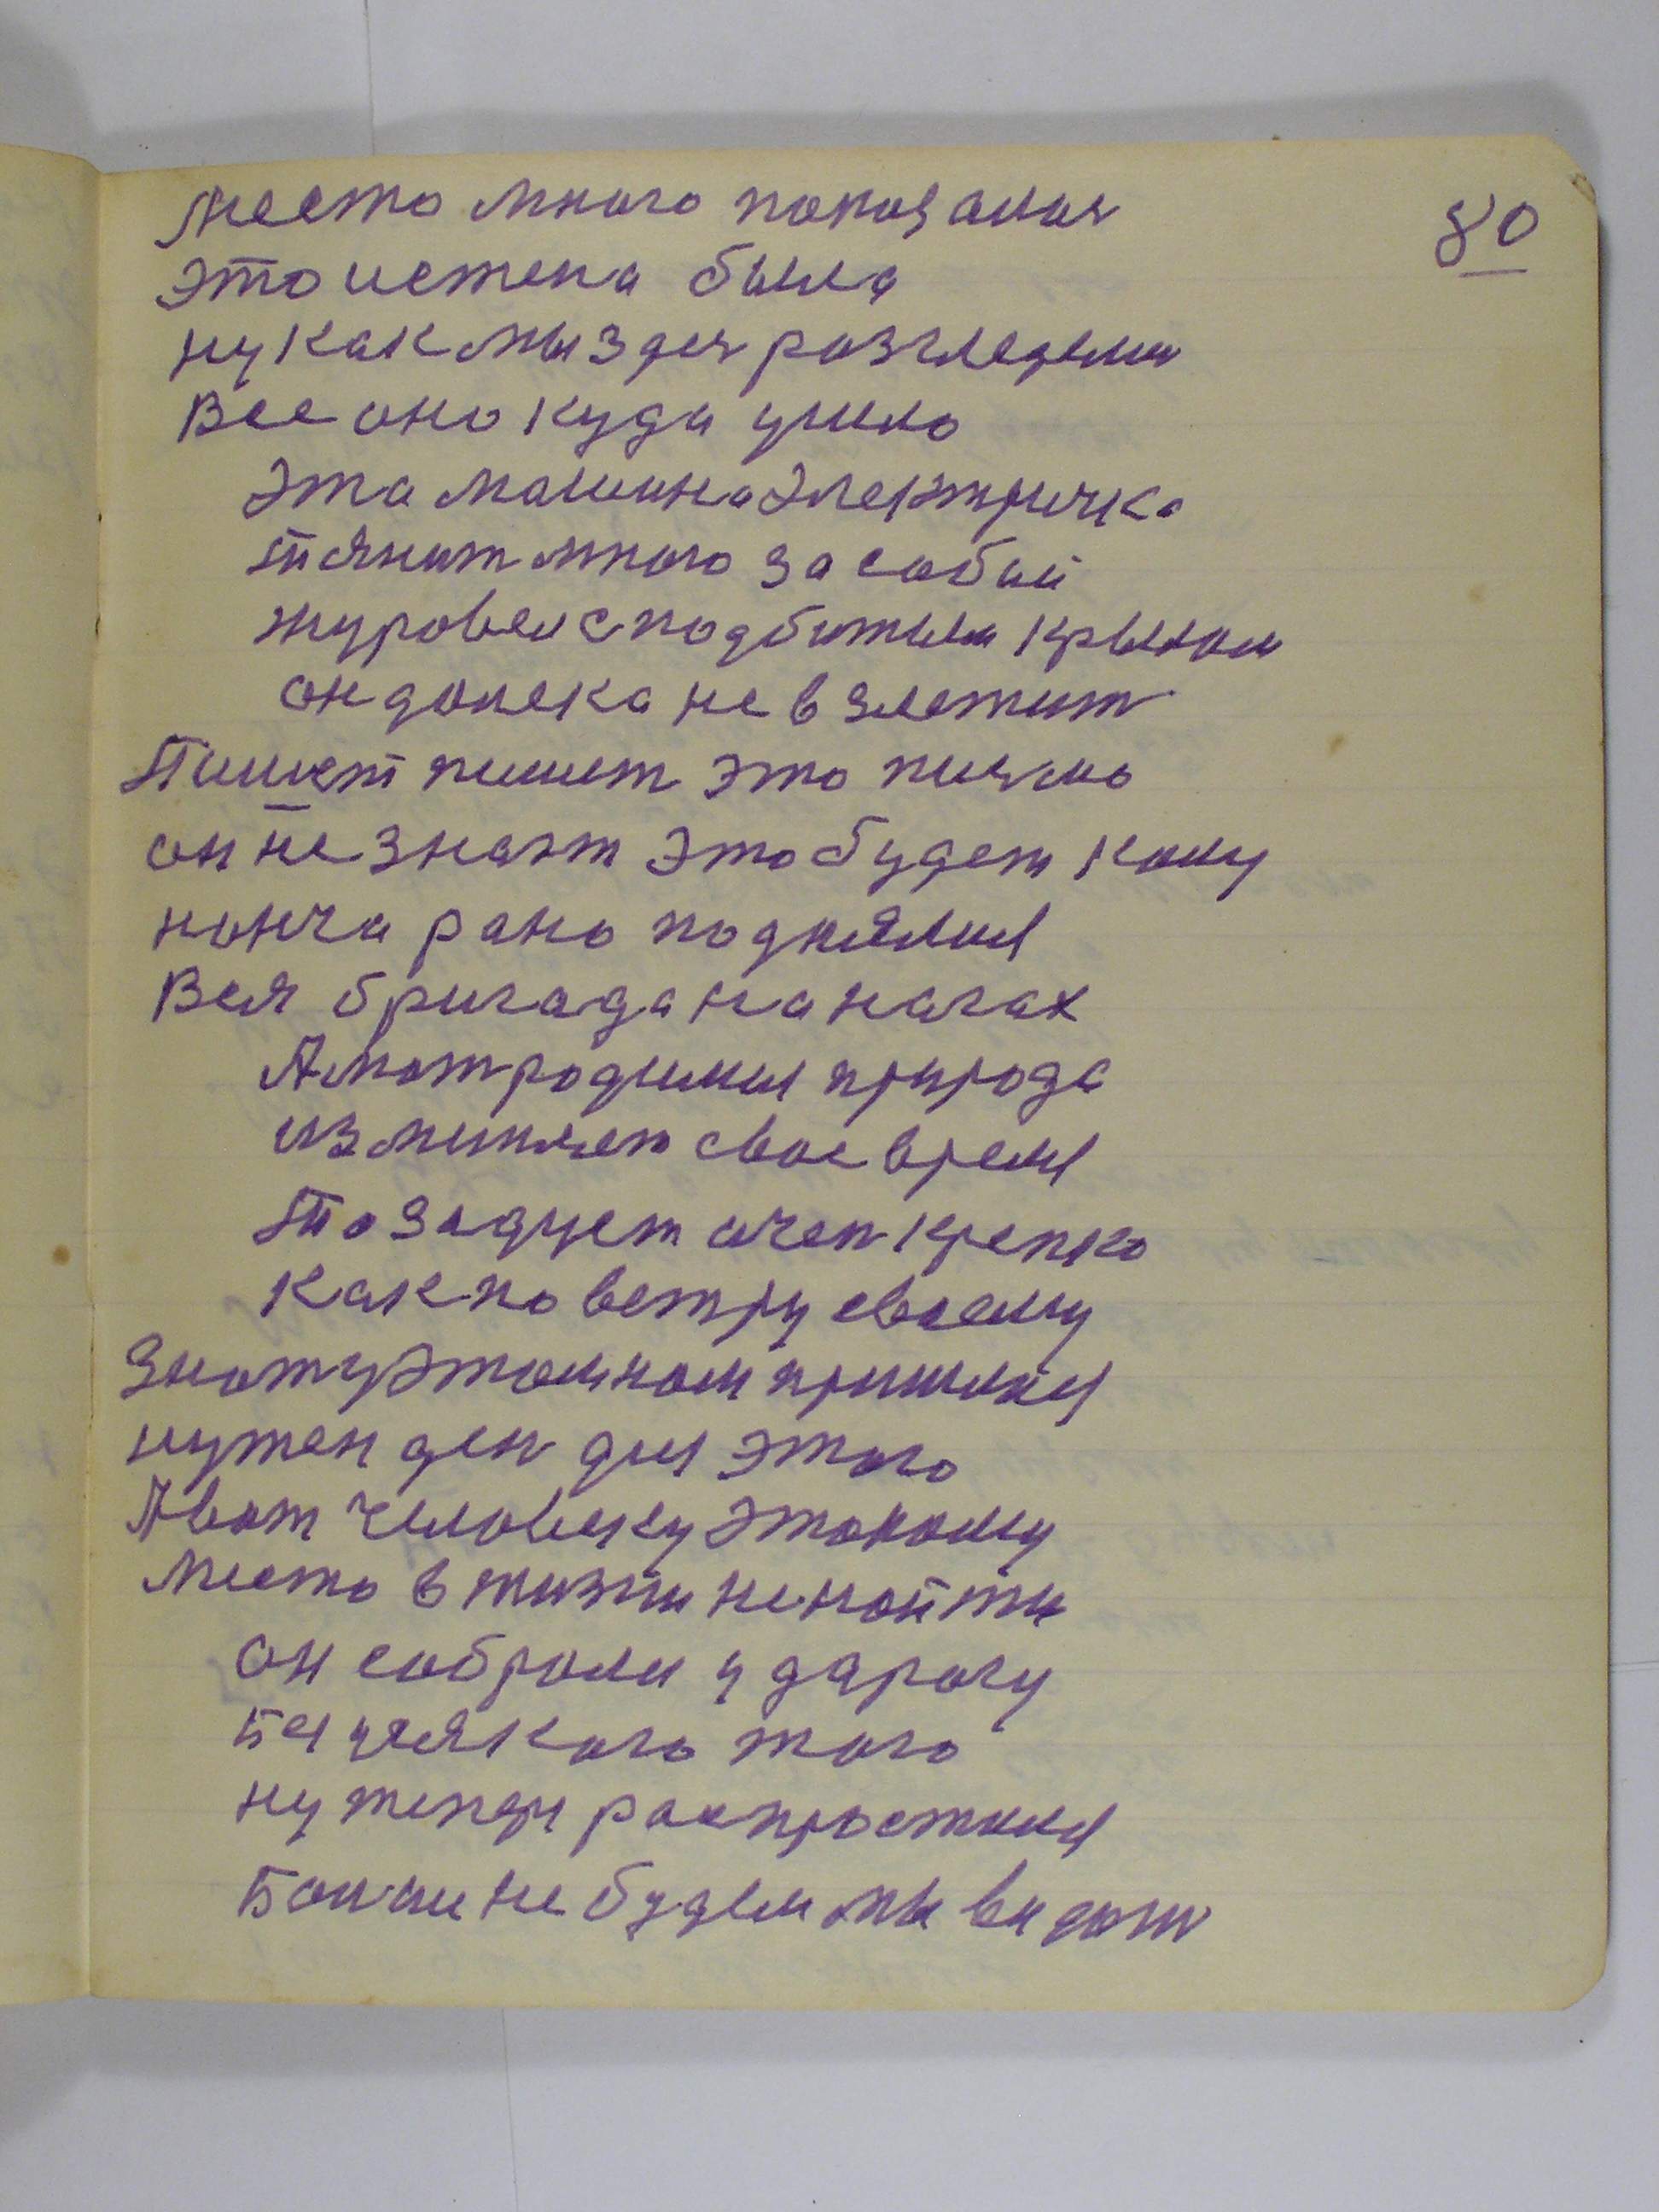 место много показалося
80
это истена была
ну как мы здеся разгледели
Все оно куда ушло
Эта машина электричка
тянит много за собой
журовел с подбитым крылом
он далека не взлетит
Пишет пишет это писмо
он не знает это будет кому
нонча рано поднялися
Вся бригада на нагах
А мат родимая природа
изминяет свое время
То задует очен крепко
как по ветру своему
Знат у этом нам пришлося
нужен ден для этого
А вот человеку этакому
место в жизни не найти
он собрали у дарогу
Без усякого того
ну тепер распростился
Болши не будем мы видат